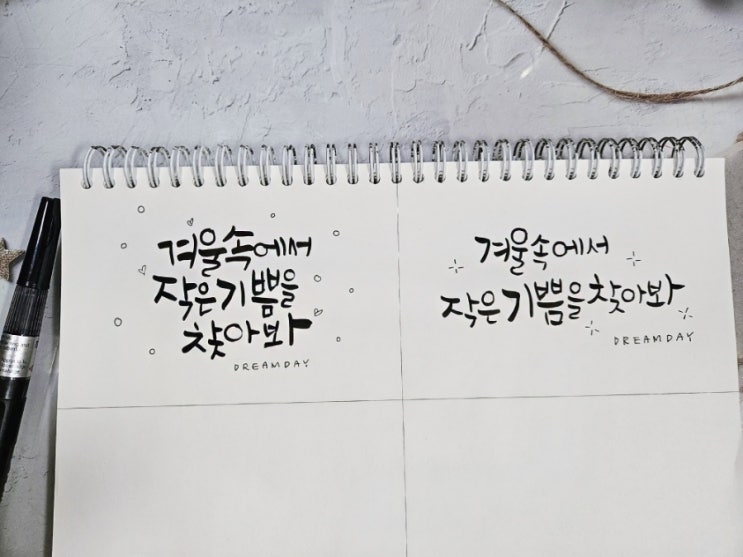 겨울속에서
작은기쁨을
찾아봐
DREAMDAY
겨울속에서
작은기쁨을찾아봐
DREAMDAY